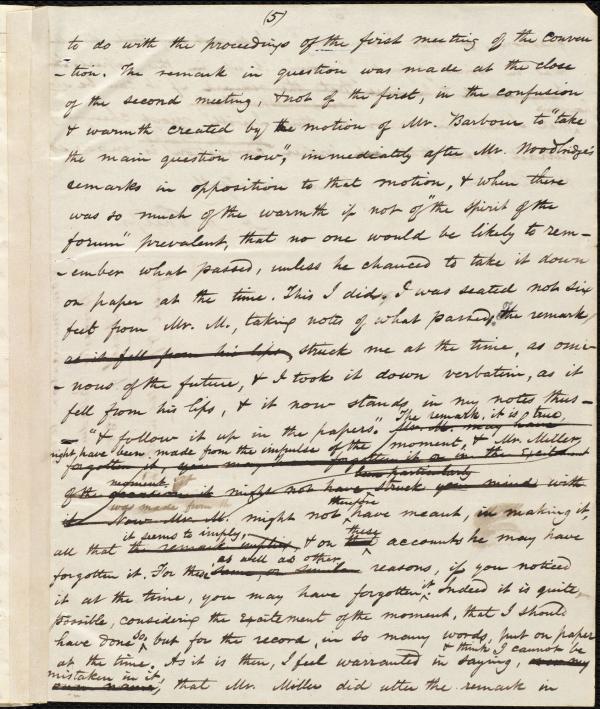 (5)
to do with the proceedings of the first meeting of the conven
-tion. The remark in question was made at the close
of the second meeting, & not of the first, in the confusion
& warmth created by the motion of Mr. Barbour to "take
the main question now", immediately after Mr. Woodbridge's
remarks in opposition to that motion, & when there
was so much of the warmth if not of "the spirit of the
forum" prevalent, that no one would be likely to rem-
-ember what passed, unless he chanced to take it down
on paper at the time. This I did. I was seated not six
feet from Mr. M., taking notes of what passed. The remark,
as it fell from his lips, struck me at the time, as omi-
-nous of the future, & I took it down verbatim, as it
fell from his lips, & it now stands in my notes thus -
The remark, it is true,
= "& follow it up in the papers." Mr. M. may have
right have been made from the impulse of the moment, & Mr. Miller,
forgotten it, you may forgotten it or in the excited
moment, it been particularly
of the occasion it might not have struck your mind with
was made from therefore
it Now Mr. M. might not have meant, in making it,
it seems to imply, these
all that the remark implies, & on accounts he may have
as well as other
forgotten it. For these same, or similar reasons, if you noticed
it at the time, you may have forgotten it. Indeed it is quite
possible, considering the excitement of the moment, that I should
have done so, but for the record, in so many words, put on paper
& think I cannot be
at the time. As it is then, I feel warranted in saying, as in my
mistaken in it,
own name, that Mr. Miller did utter the remark in